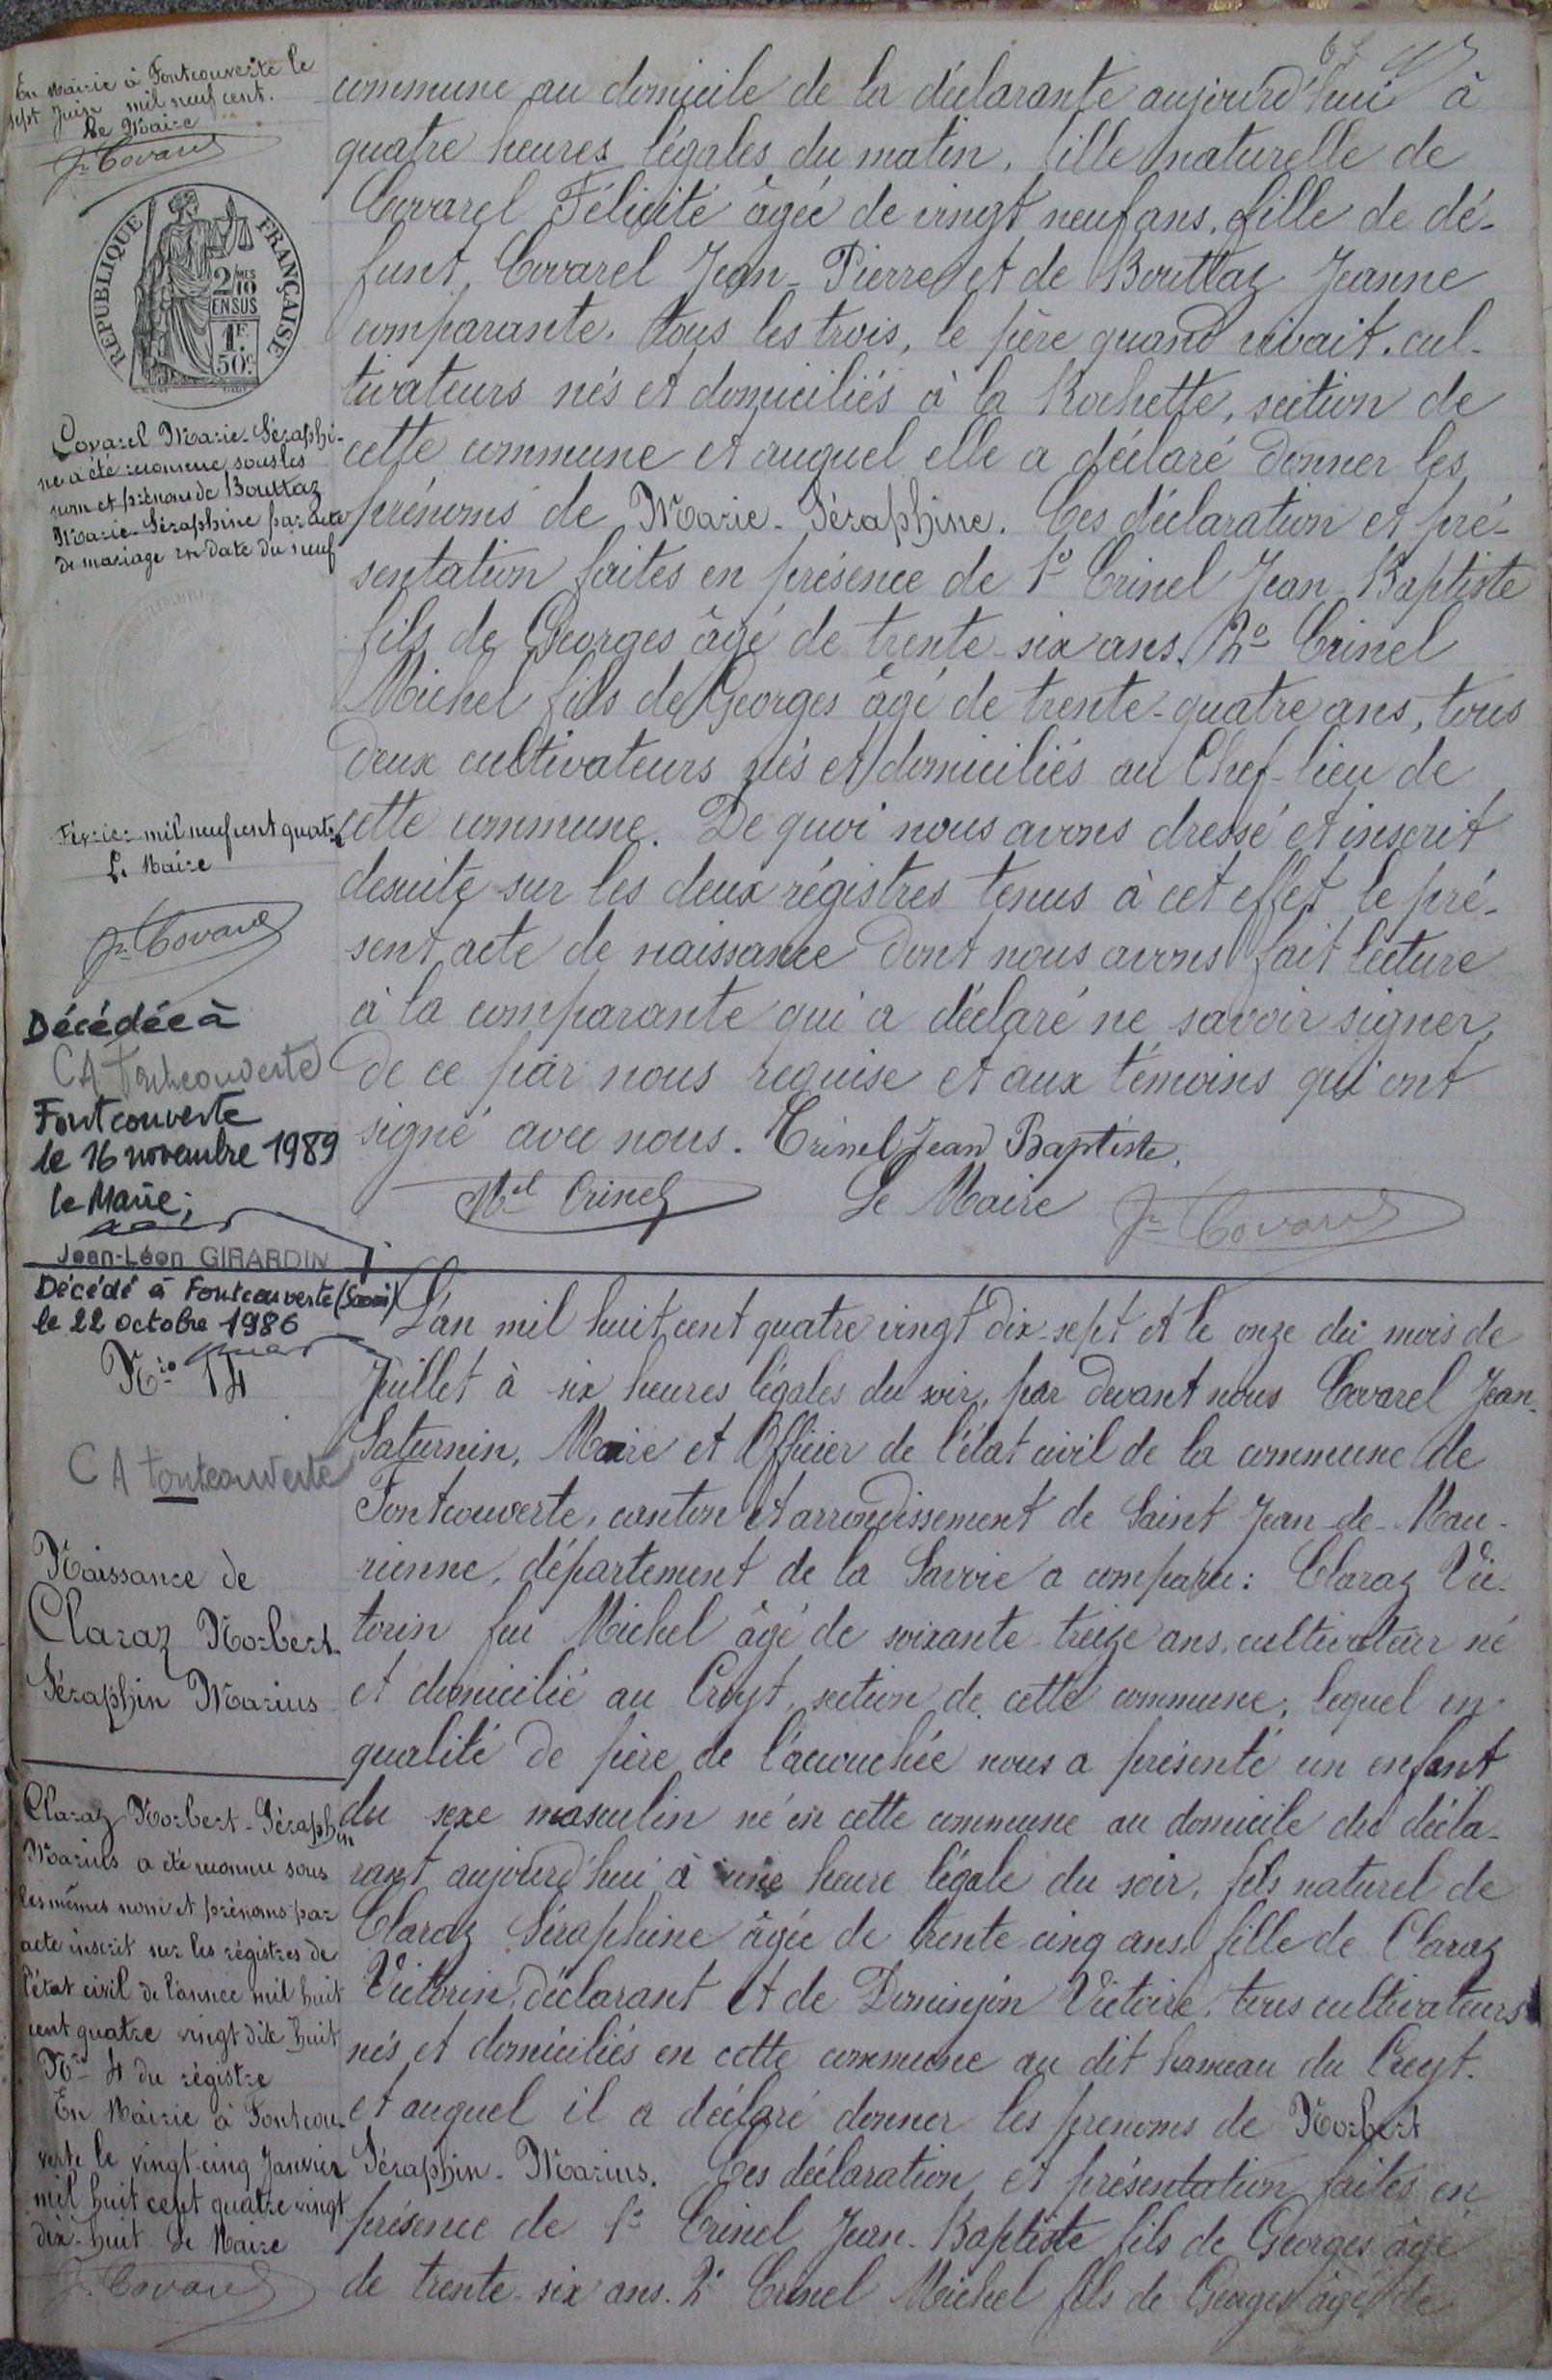 En Mairie à Fontcouverte le
sept Juin mil neuf cent.
Le Maire
Jn Covarel
REPUBLIQUE FRANÇAISE
2/10MES
EN SUS
1F.
50c.
Covarel Marie-Séraphi-
ne a été reconnue sous les
nom et prénoms de Bouttaz
Marie-Séraphine par acte
de mariage en date du neuf
Février mil neuf cent quatre
Le Maire
Jn Covarel
Décédée à
CA Fontcouverte
Fontcouverte
le 16 novembre 1989
le Maire,
Jean-Léon GIRARDIN
commune au domicile de la déclarante aujourd'hui à
quatre heures légales du matin, fille naturelle de
Covarel Félicité âgée de vingt neuf ans, fille de dé-
funt Covarel Jean-Pierre et de Bouttaz Jeanne
comparante. tous les trois, le père quand vivait, cul-
tivateurs nés et domiciliés à la Rochette, section de
cette commune et auquel elle a déclaré donner les
prénoms de Marie-Séraphine. Ces déclaration et pré-
sentation faites en présence de 1o Crinel Jean-Baptiste
fils de Georges âgé de trente-six ans. 2o Crinel
Michel fils de Georges âgé de trente-quatre ans, tous
deux cultivateurs nés et domiciliés au Chef-lieu de
cette commune. De quoi nous avons dressé et inscrit
desuite sur les deux régistres tenus à cet effet le pré-
sent acte de naissance dont nous avons fait lecture
à la comparante qui a déclaré ne savoir signer
de ce par nous requise et aux témoins qui ont
signé avec nous. Crinel Jean Baptiste.
Mel Crinel Le Maire Jn Covarel
Décédé à Fontcouverte (Savoie)
le 22 Octobre 1986
Nro 14
CA Fontcouverte
Naissance de
Claraz Norbert
Séraphin Marius
Claraz Norbert-Séraphin
Marius a été reconnu sous
les mêmes nom et prénoms par
acte inscrit sur les régistres de
l'état civil de l'année mil huit
cent quatre vingt dix huit
Nro 4 du régistre
En Mairie à Fontcou-
verte le vingt-cinq Janvier
mil huit cent quatre vingt
dix-huit Le Maire
Jn Covarel
L'an mil huit cent quatre vingt dix-sept et le onze du mois de
Juillet à six heures légales du soir, par devant nous Covarel Jean-
Saturnin, Maire et Officier de l'état civil de la commune de
Fontcouverte, canton et arrondissement de Saint Jean-de-Mau-
rienne, département de la Savoie a comparu: Claraz Vic-
torin feu Michel âgé de soixante-treize ans, cultivateur né
et domicilié au Creyt, section de cette commune, lequel en
qualité de père de l'accouchée nous a présenté un enfant
du sexe masculin né en cette commune au domicile du décla-
rant aujourd'hui à une heure légale du soir, fils naturel de
Claraz Séraphine âgée de trente cinq ans, fille de Claraz
Victorin, déclarant et de Dominjon Victoire, tous cultivateurs
nés et domiciliés en cette commune au dit hameau du Creyt.
et auquel il a déclaré donner les prenoms de Norbert
Séraphin-Marius. Ces déclaration et présentation faites en
présence de 1o Crinel Jean-Baptiste fils de Georges âgé
de trente-six ans. 2o Crinel Michel fils de Georges âgé de